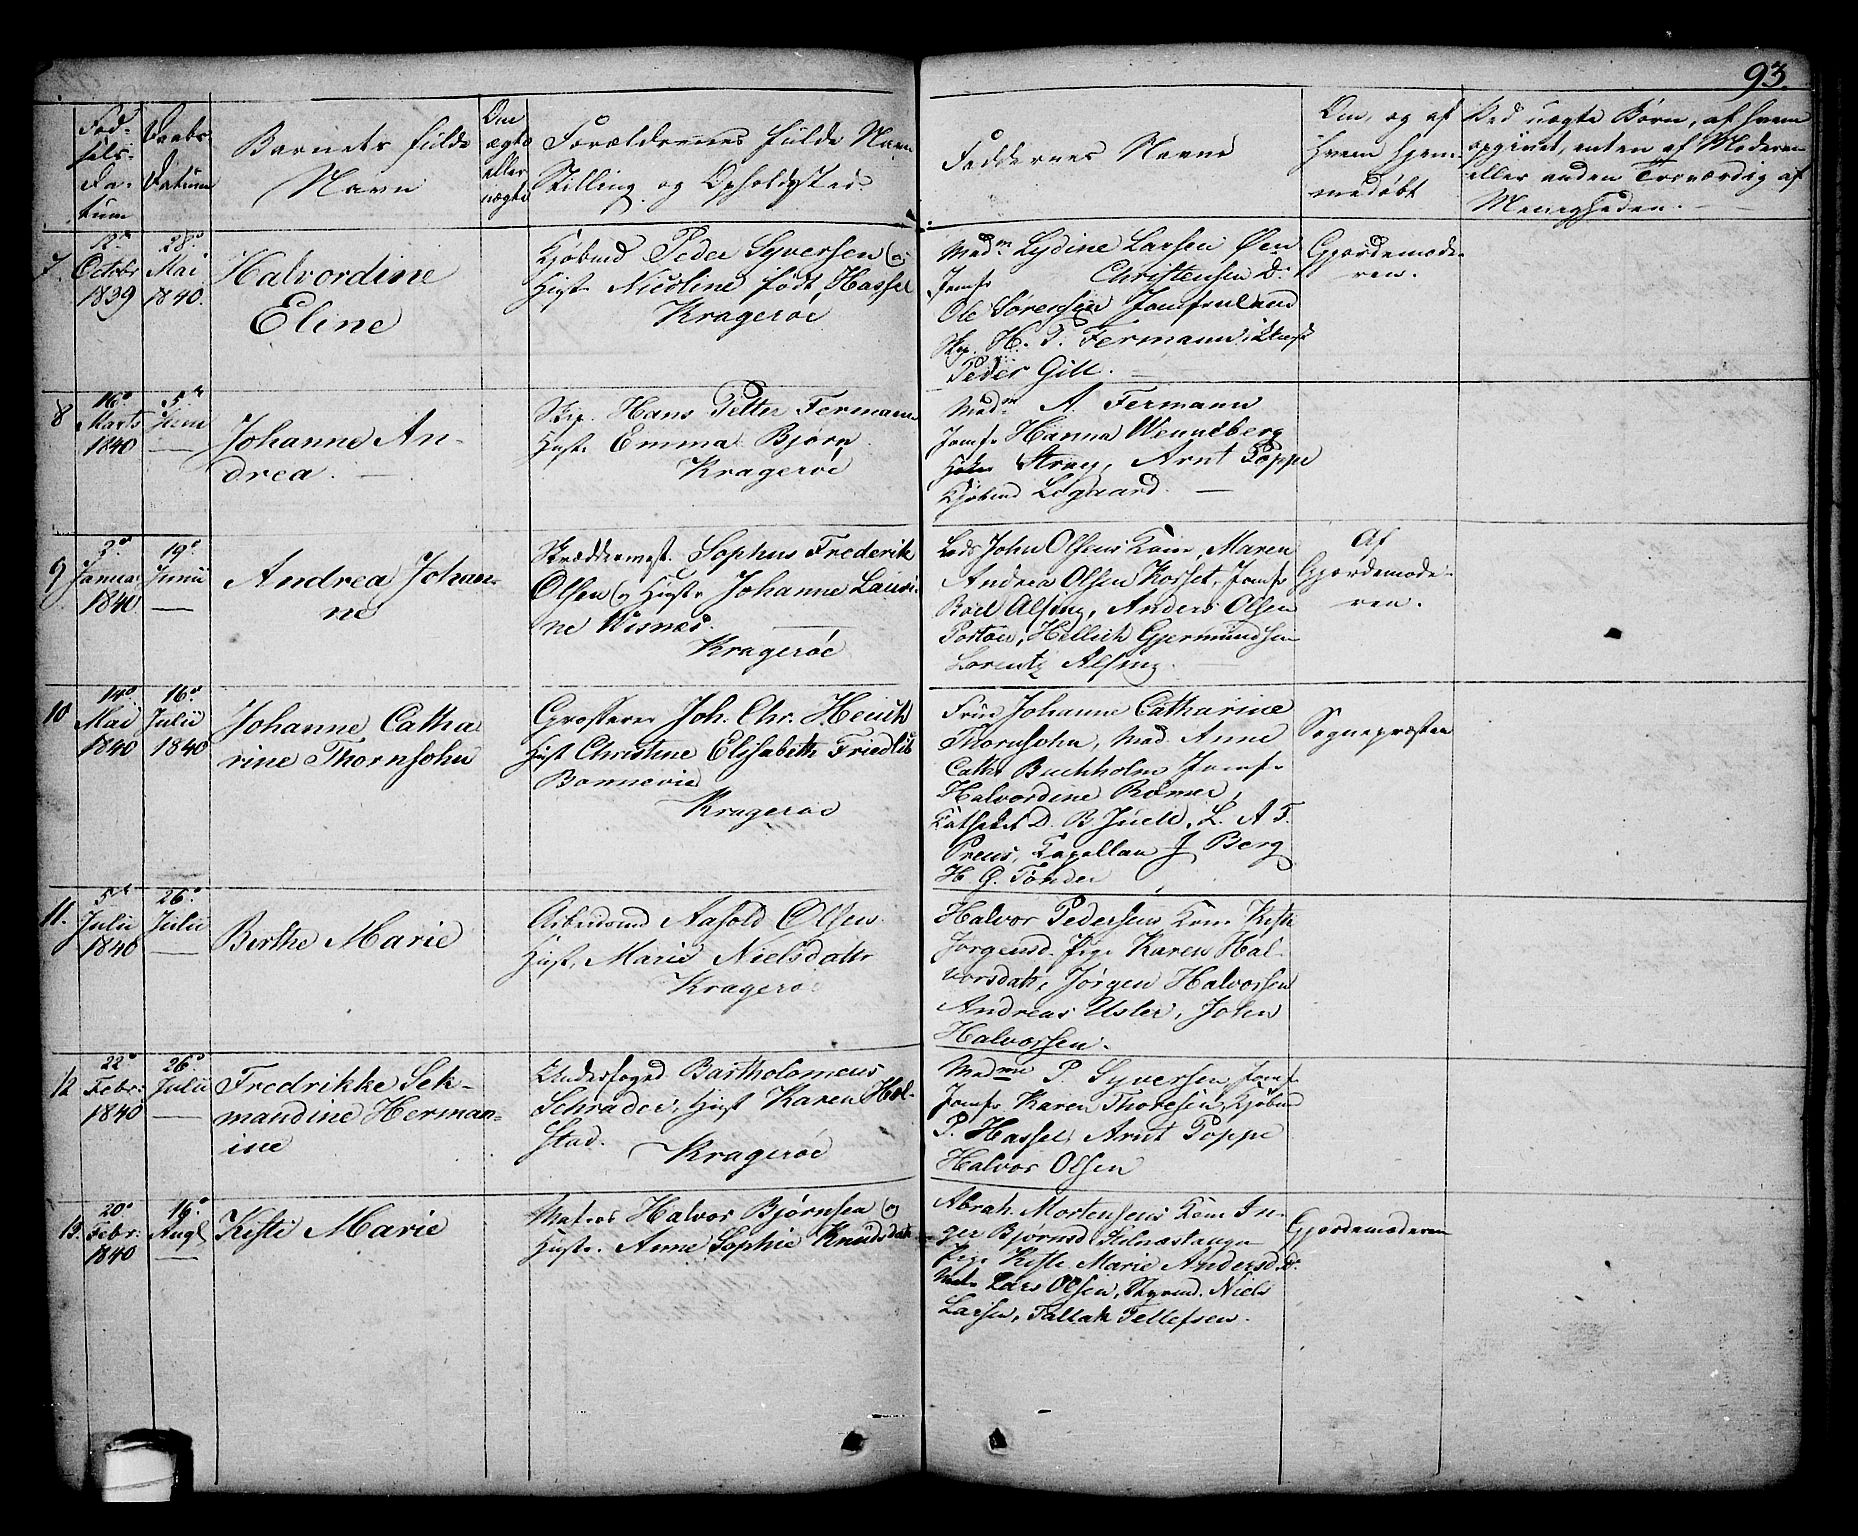 93.
Fød-
sels-
Da-
tum
Daabs
Datum
Barnets fulde
Navn
Om
ægte
eller
uægte
Forældrenes fulde Navn
Stilling og Opholdsted
Faddernes Navne
Om, og af
Hvem hjem-
medøbt
Ved uægte Børn, af hvem
opgivet, enten af Moderen
eller anden Troværdig af
Menigheden.
7.
12te
Octobr
1839
28de
Mai
1840.
Halvordine
Eline
Kjøbmd Peder Syversen og
Hust. Nicoline født Hassel
Kragerøe
Madm Lydine Larsen Øen
Jomf. Christensen D.
Ole Sørensen Jomfruland
Skp. H. P. Fermann,
Peder Gill.
Gjordemode-
ren.
8
16de
Marts
1840
5te
Juni
Johanne An-
drea.
Skp. Hans Petter Fermann
Hust. Emma Bjørn.
Kragerøe
Madm A. Fermann
Jomfr Hanna Wennberg
Stray, Arnt Poppe
Kjøbmd Legaard.
9
3de
Januar
1840
19de
Junii
Andrea Johan-
ne
Skræddermest. Sophus Frederik
Olsen og Hustr Johanne Lauri-
ne Wisnes.
Kragerøe
Lods John Olsens Kone, Maren
Andrea Olsen Kosset, Jomfr
Boel Alfing, Anders Olsen
Portøe, Hellich Gjermundsen
Lorentz Alfing.
Af
Gjordemode-
ren.
10
14de
Mai
1840
16de
Julii
1840
Johanne Catha
rine Thornsohn
Grosserer Joh. Chr. Heuch
Hust Christine Elisabeth Friedlib
Bonnevie
Kragerøe
Frue Johanne Catharine
Thornsohn, Mad. Anne
Cath. Buchholm Jomfr
Halvordine Rømer,
Catheket D. B. Juell, L. A. F.
Preus, Kapellan J Berg
H. G. Tønder
Sognepræsten
11.
5te
Julii
1840
26de
Julii
Berthe Marie
Arbeidsmd Aasold Olsen.
Hust, Marie Nielsdattr
Kragerø.
Halvor Pedersens Kone Kisti
Jørgensd. Pige Karen Hal-
vorsdatr, Jørgen Halvorsen
Andreas Usler, John
Halvorsen.
12
22de
Febr:
1840
26de
Julii
Fredrikke Sek-
mandine Herman-
ine
Underfoged Bartholomeus
Schrader, Hust Karen Hol-
stad.
Kragerøe
Madme P. Syversen, Jomfr
Jomfr Karen Thoresen, Kjøbmd
P. Hassel, Arnt Poppe
Halvor Olsen
13.
20de
Febr:
1840
16de
Augl
Kisti Marie
Matros Halvor Bjørnsen og
Hustr. Anne Sophie Knudsdatr
Abrah. Mortensens Kone In-
ger Bjørnsd Stilnæstangen
Pige Kisti Marie Andersdtr.
Mat. Lars Olsen, Styrmd. Niels
Larsen, Tallak Tellefsen.
Gjordemoderen